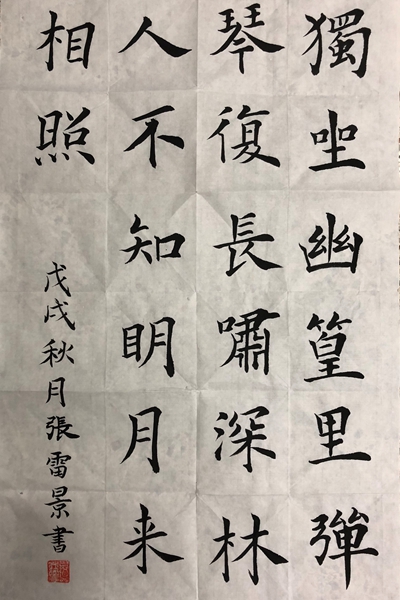 獨坐幽篁里彈
琴復長嘯深林
人不知明月来
相照
戊戌秋月張雷景書